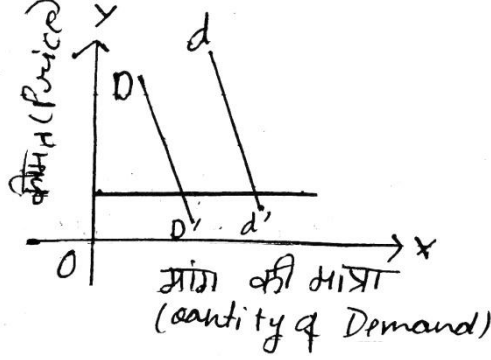 Y
d
D
कीमत (Price)
D'
d'
X
O
मांग की मात्रा
(Qantity of Demand)